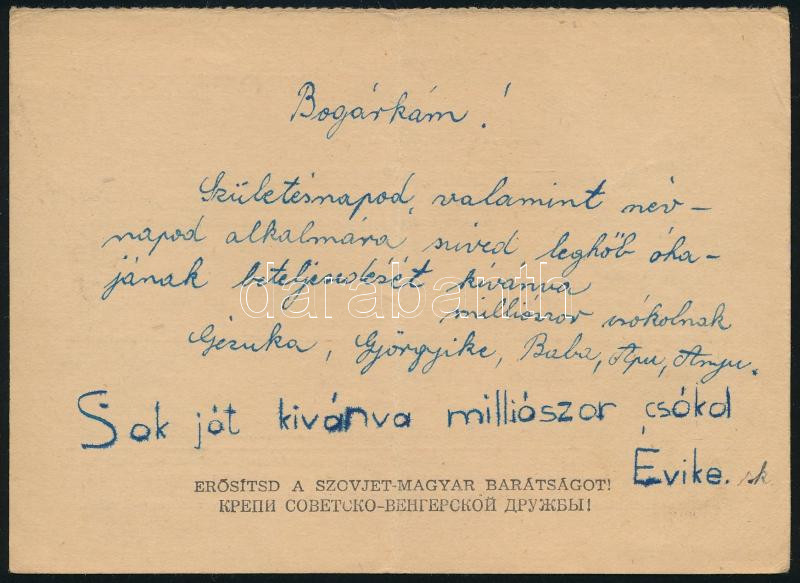 Bogárkám!
Születésnapod, valamint név-
napod alkalmára szíved leghőb óha-
jának beteljesedését kívánva
milliószor csókolnak
Gézuka, Györgyike, Baba, Apu, Anyu.
Sok jót kivánva milliószor csókol
Évike. sk
ERŐSÍTSD A SZOVJET-MAGYAR BARÁTSÁGOT!
КРЕПИ СОВЕТСКО-ВЕНГЕРСКОЙ ДРУЖБЫ!
darabanth